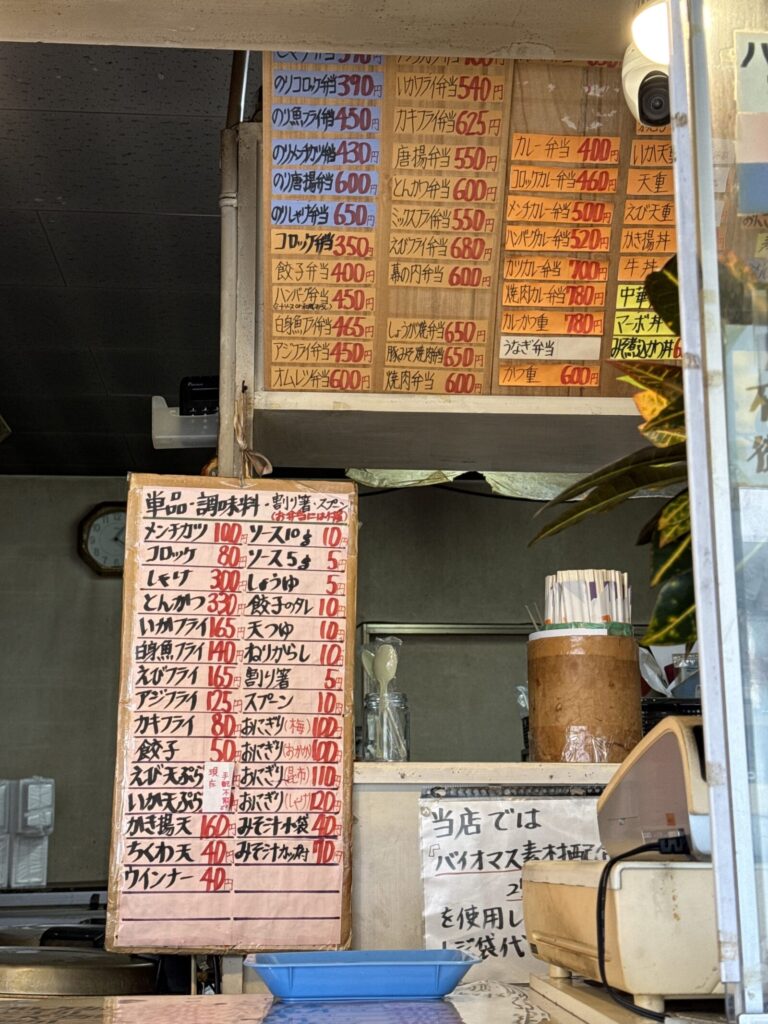 のりコロッケ弁当 390円
のり魚フライ弁当 450円
のりメンチカツ弁当 430円
のり唐揚弁当 600円
のりしゃけ弁当 650円
コロッケ弁当 350円
餃子弁当 400円
ハンバーグ弁当 450円
白身魚フライ弁当 465円
アジフライ弁当 450円
オムレツ弁当 600円
いかフライ弁当 540円
カキフライ弁当 625円
唐揚弁当 550円
とんかつ弁当 600円
ミックスフライ弁当 550円
えびフライ弁当 680円
幕の内弁当 600円
しょうが焼弁当 650円
豚みそ焼肉弁当 650円
焼肉弁当 600円
カレー弁当 400円
コロッケカレー弁当 460円
メンチカレー弁当 500円
ハンバーグカレー弁当 520円
カツカレー弁当 700円
焼肉カレー弁当 780円
カレーかつ重 780円
うなぎ弁当
かつ重 600円
いか天
天重
えび天重
かき揚丼
牛丼
中華
マーボ丼
みそ煮込かつ丼
単品・調味料・割り箸・スプーン
メンチカツ 100円
コロッケ 80円
しゃけ 300円
とんかつ 330円
いかフライ 165円
白身魚フライ 140円
えびフライ 165円
アジフライ 125円
カキフライ 80円
餃子 50円
えび天ぷら
いか天ぷら
かき揚天 160円
ちくわ天 40円
ウインナー 40円
ソース10g 10円
ソース5g 5円
しょうゆ 5円
餃子のタレ 10円
天つゆ 10円
ねりからし 10円
割り箸 5円
スプーン 10円
おにぎり(梅) 100円
おにぎり(おかか) 100円
おにぎり(昆布) 110円
おにぎり(しゃけ) 120円
みそ汁小袋 40円
みそ汁カップ付 70円
当店では
『バイオマス素材配
を使用し
レジ袋代